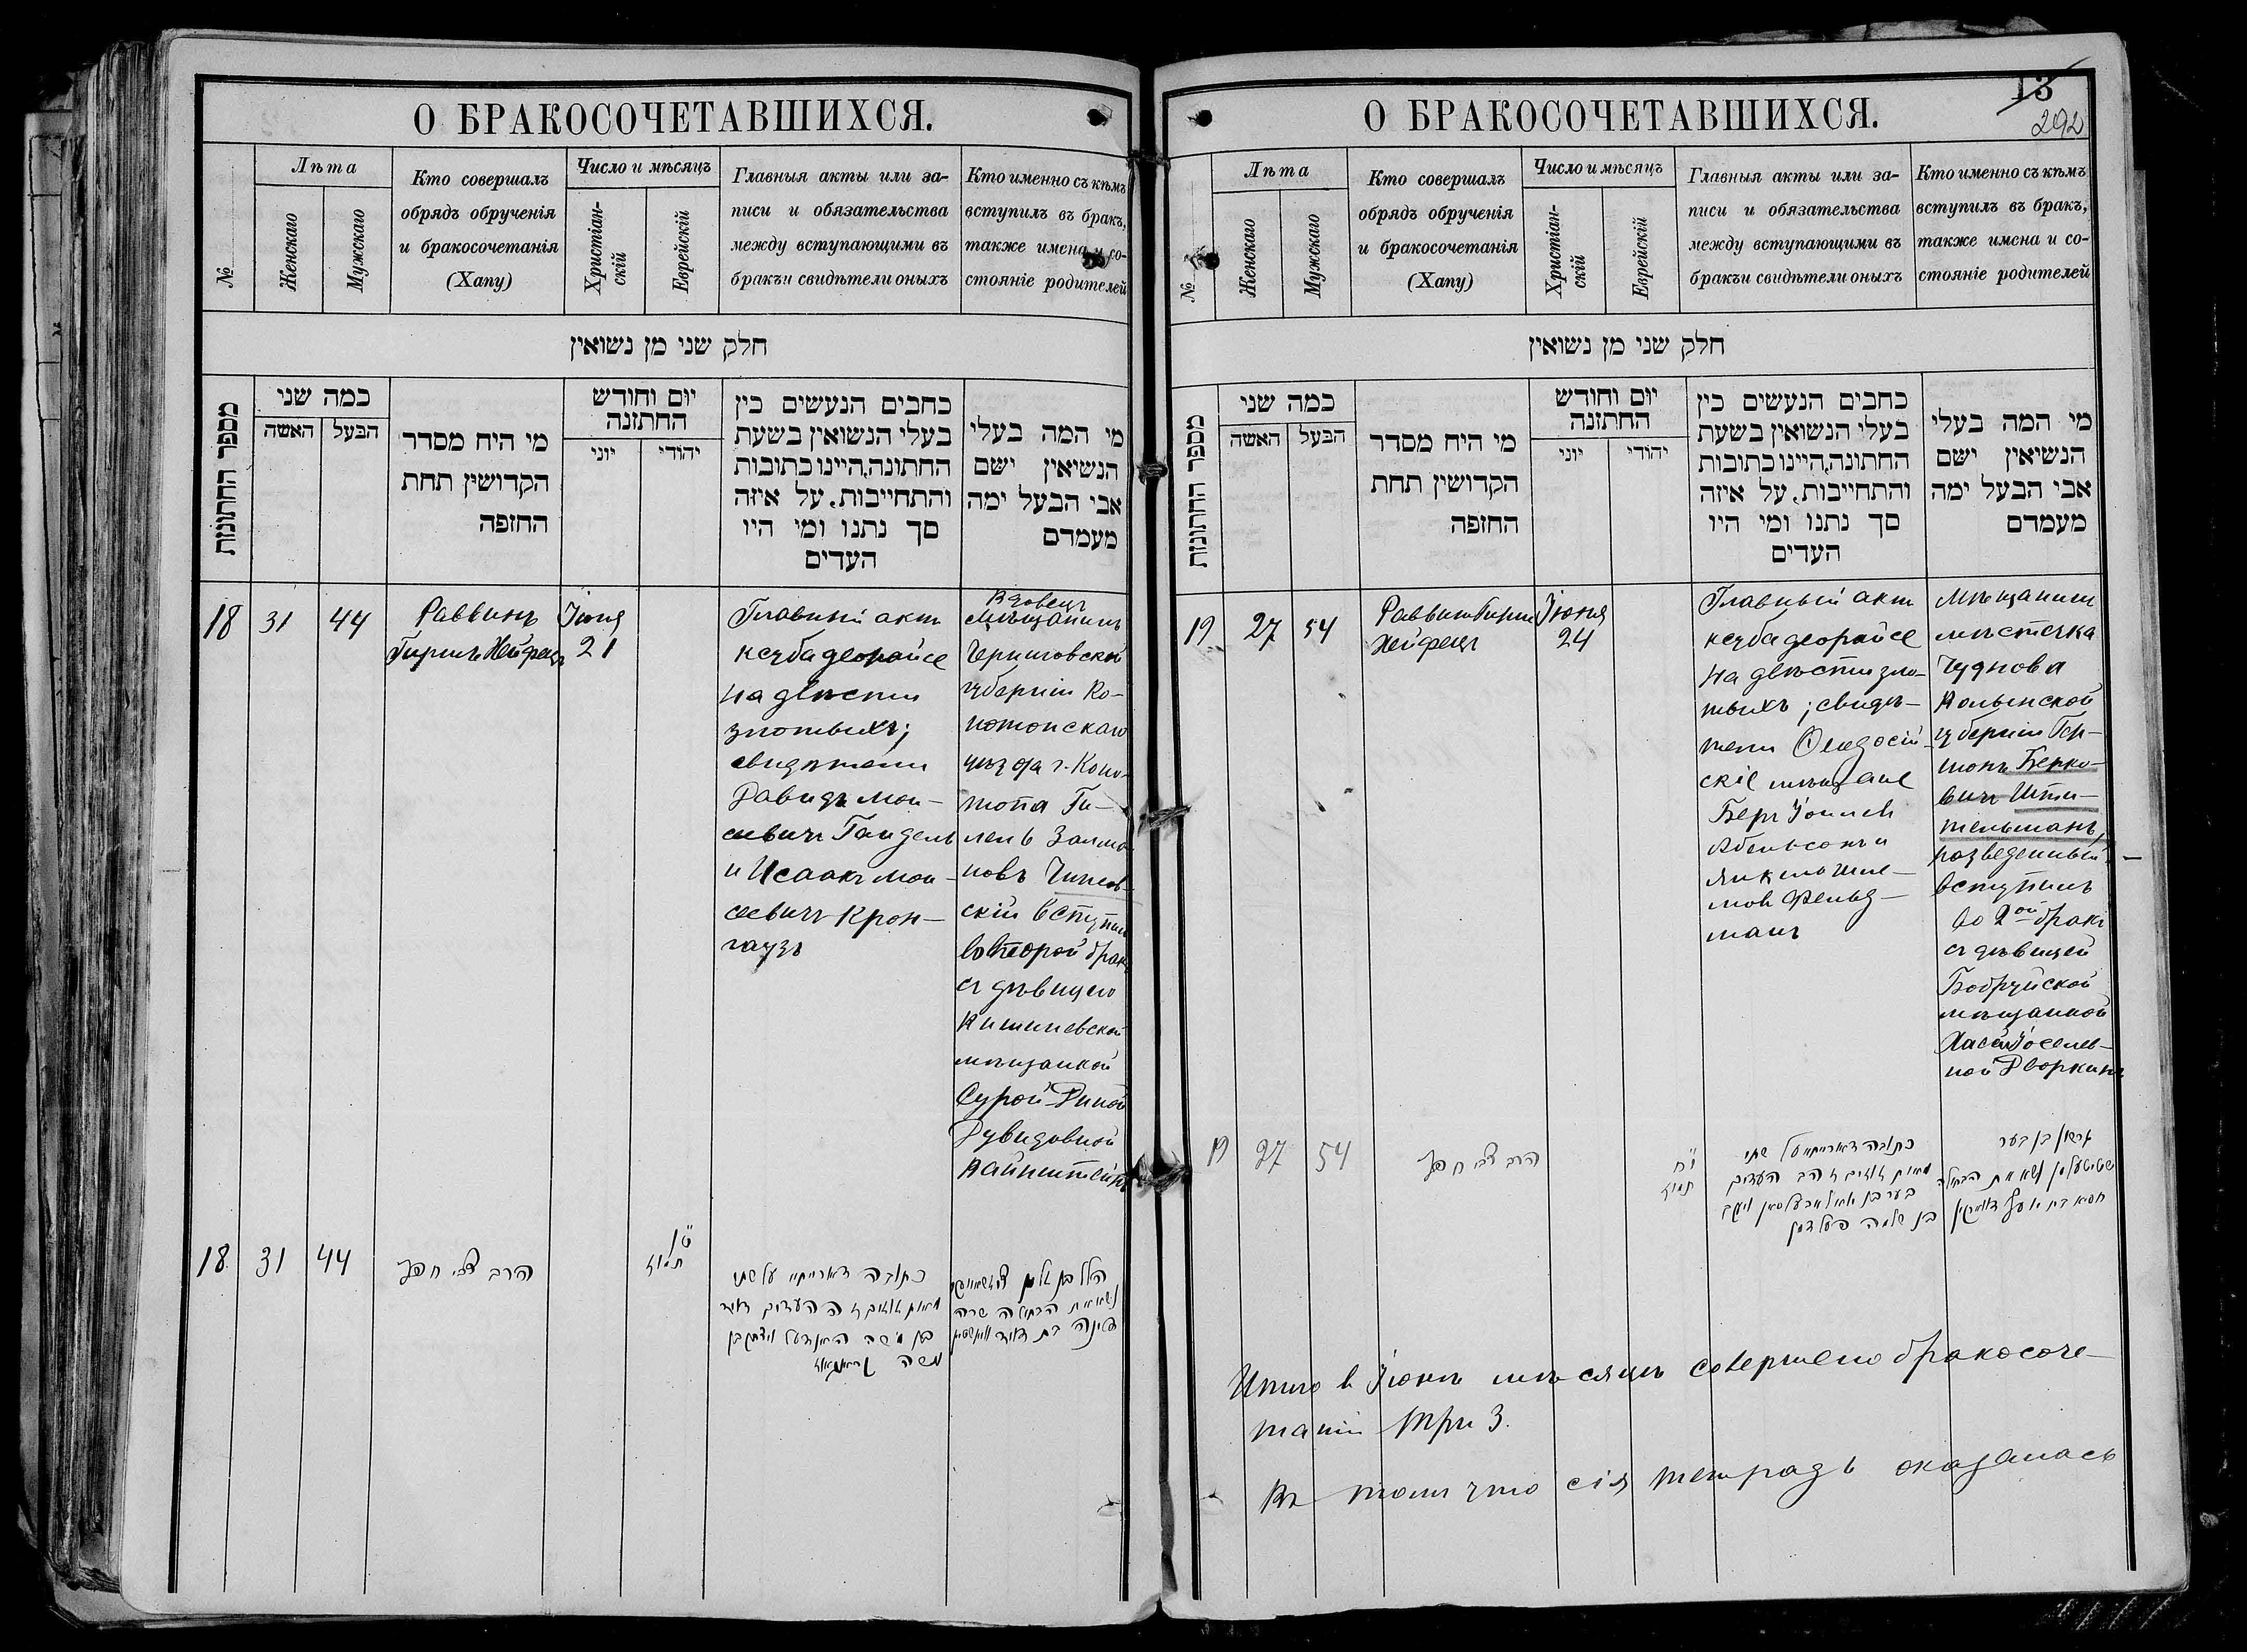 О БРАКОСОЧЕТАВШИХСЯ.
№
Лѣта
Женскаго
Мужскаго
Кто совершалъ
обрядъ обрученія
и бракосочетанія
(Хапу)
Число и мѣсяцъ
Христіан-
скій
Еврейскій
Главныя акты или за-
писи и обязательства
между вступающими въ
бракъи свидѣтели оныхъ
Кто именно съ кѣмъ
вступилъ въ бракъ,
также имена и со-
стояніе родителей
חלק שני מן נשואין
מספר החתונות
כמה שני
האשה
הבעל
מי היח מסדר
הקדושין תחת
החופה
יום וחודש
החתונה
יוני
יהודי
כחבים הנעשים בין
בעלי הנשואין בשעת
החתונה,היינו כתובות
והתחייבות, על איזה
סך נתנו ומי היו
העדים
מי המה בעלי
הנשיאין ישם
אבי הבעל ימה
מעמדם
18
31
44
Раввинъ
Гиршъ Хейфецъ
Іюня
21
Главный актъ
ксуба деорайсе
на двѣсти
злотыхъ;
свидѣтели
Давидъ Мои-
сеевичъ Гандель
и Исаакъ Мои-
сеевичъ Крон-
гаузъ
Вдовецъ
Мѣщанинъ
Черниговской
губерніи Ко-
нотопскаго
уѣзда г. Коно-
топа Ги-
лель Залма-
новъ
скій вступилъ
во второй бракъ
съ дѣвицею
Кишиневской
мѣщанкой
Сурой-Диной
Дувидовной
Вайнштейнъ
18
31
44
הרב צבי חפץ
תמוז
כתובה דאורייתא על שתי
מאות זהובים והעדים דוד
בן משה האנדעל ויצחק בן
משה
הלל בן
נשא את הבתולה שרה
דינה בת דוד
О БРАКОСОЧЕТАВШИХСЯ.
13
292
№
Лѣта
Женскаго
Мужскаго
Кто совершалъ
обрядъ обрученія
и бракосочетанія
(Хапу)
Число и мѣсяцъ
Христіан-
скій
Еврейскій
Главныя акты или за-
писи и обязательства
между вступающими въ
бракъи свидѣтели оныхъ
Кто именно съ кѣмъ
вступилъ въ бракъ,
также имена и со-
стояніе родителей
חלק שני מן נשואין
מספר החתונות
כמה שני
האשה
הבעל
מי היח מסדר
הקדושין תחת
החופה
יום וחודש
החתונה
יוני
יהודי
כחבים הנעשים בין
בעלי הנשואין בשעת
החתונה,היינו כתובות
והתחייבות, על איזה
סך נתנו ומי היו
העדים
מי המה בעלי
הנשיאין ישם
אבי הבעל ימה
מעמדם
19
27
54
Раввинъ Гиршъ
Хейфецъ
Іюня
24
Главный актъ
ксуба деорайсе
на двѣсти зло-
тыхъ; свидѣ-
тели Ѳеодосій-
скіе мѣщане
Беръ
Абельсонъ и
Янкель Шле-
мовъ Фельд-
манъ
Мѣщанинъ
мѣстечка
Чуднова
Волынской
губерніи Гер-
шонъ Берко-
вичъ Шти-
тельманъ,
разведенный
вступилъ
во 2ой бракъ
съ дѣвицей
Бобруйской
мѣщанкой
Хасей Іоселев-
ной Дворкинъ
19
27
54
הרב צבי חפץ
י"ח
תמוז
כתובה דאורייתא על שתי
מאות זהובים והעדים
בער בן
בן שלמה פעלדמן
גרשון בן בער
שטיטעלמן נשא את הבתולה
חסיא בת יוסף דווארקין
Итого въ Іюнѣ мѣсяцѣ совершено бракосоче-
таній три 3.
Въ томъ что сія тетрадь оказалась